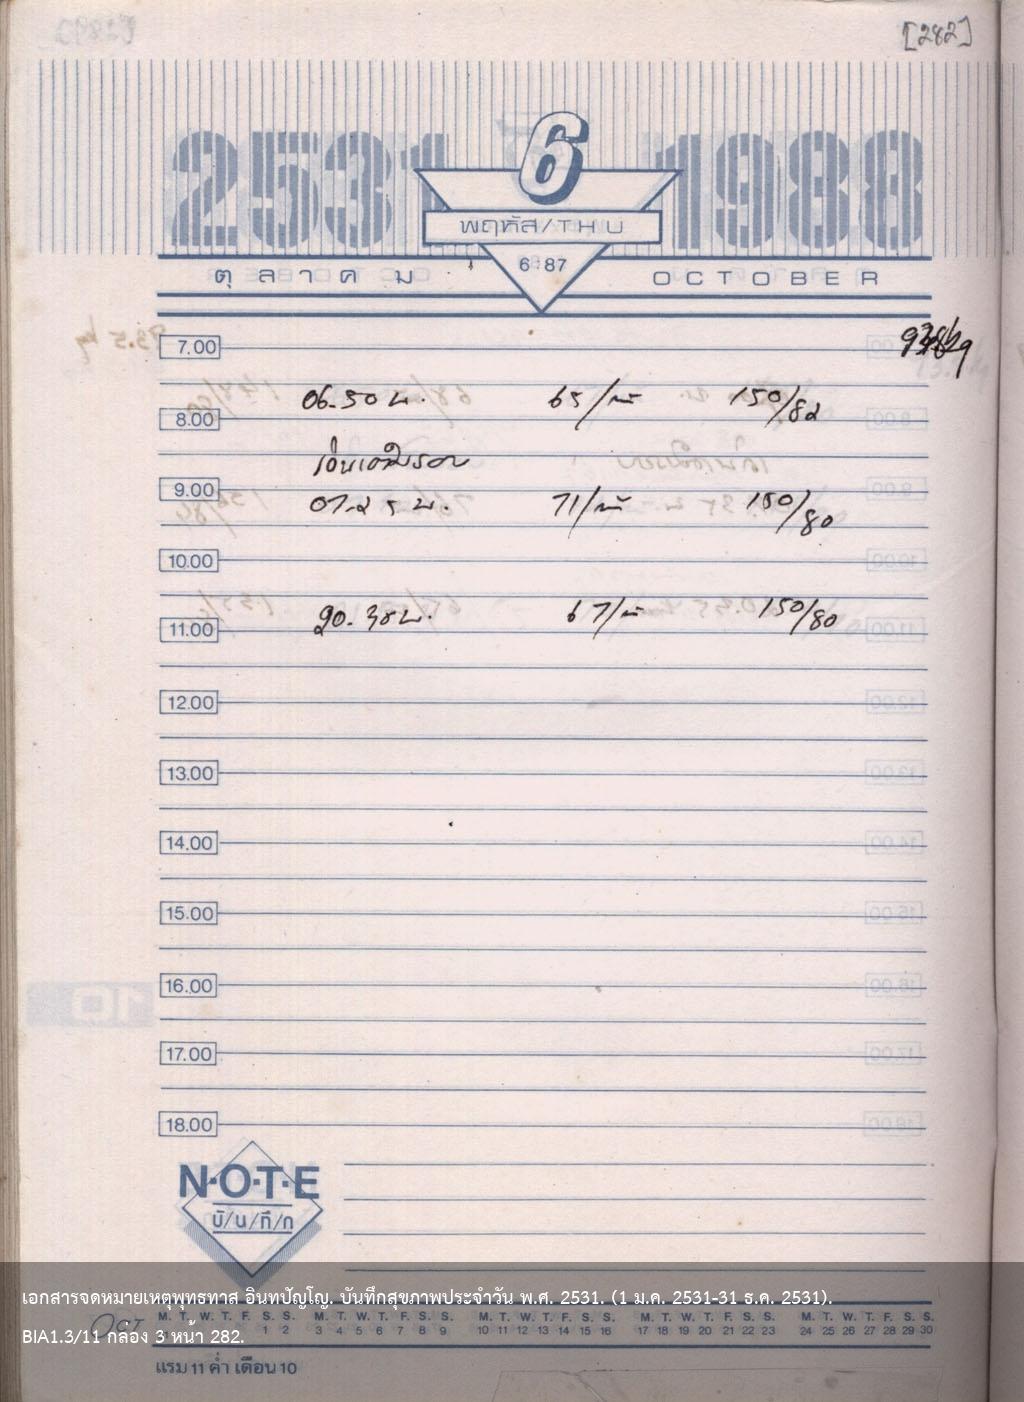 [282]
2531 6 1988
พฤหัส/THU
6 87
ตุลาคม OCTOBER
7.00
06.50 น. 65/น 150/82
8.00
เดินเต็มรอบ
9.00
07.25 น. 71/น 150/80
10.00
20.30 น. 67/น 150/80
11.00
12.00
13.00
14.00
15.00
16.00
17.00
18.00
N·O·T·E
บั/น/ทึ/ก
เอกสารจดหมายเหตุพุทธทาส อินทปัญโญ. บันทึกสุขภาพประจำวัน พ.ศ. 2531. (1 ม.ค. 2531-31 ธ.ค. 2531).
M. T. W. T. F. S. S. M. T. W. T. F. S. S. M. T. W. T. F. S. S. M. T. W. T. F. S. S. M. T. W. T. F. S. S.
1 2 3 4 5 6 7 8 9 10 11 12 13 14 15 16 17 18 19 20 21 22 23 24 25 26 27 28 29 30
BIA1.3/11 กล่อง 3 หน้า 282.
แรม 11 ค่ำ เดือน 10